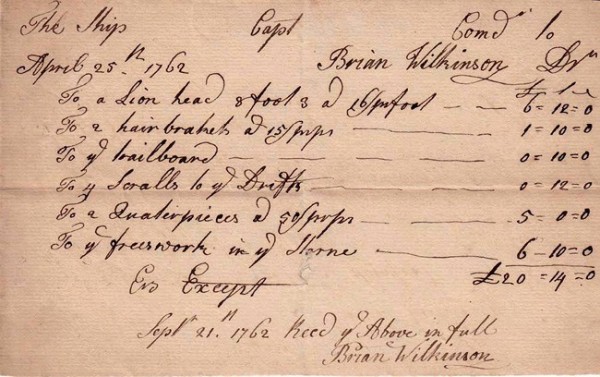 The Ship Capt Comd to
April 25th 1762 Brian Wilkinson Dr
To a Lion head 8 foot 3 a 16/ pr foot - - 6 = 12 = 0
To 2 hairbrakets a 15/ pr ps 1 = 10 = 0
To ye trailboard 0 = 10 = 0
To 4 Scralls to ye Drifts 0 = 12 = 0
To 2 Quaterpieces a 50/ pr ps 5 = 0 = 0
To ye freeswork in ye Sterne 6 - 10 = 0
Ers Except £20 = 14 = 0
Septr 21st 1762 Reed ye Above in full
Brian Wilkinson